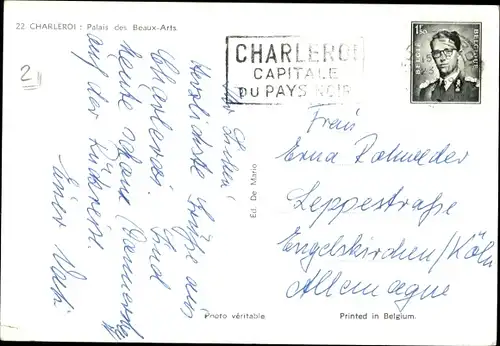 22 CHARLEROI : Palais des Beaux-Arts.
2
Ihr Lieben!
Herzlichste Grüße aus
Charleroi. Sind
heute schon (Donnerstag)
auf der Rückreise.
Euer Vati
Ed. De Mario
Photo véritable
Printed in Belgium.
CHARLEROI
CAPITALE
DU PAYS NOIR
1F50
BELGIE
BELGIQUE
Frau
Erna Rohweder
Leppestraße
Engelskirchen/Köln
Allemagne